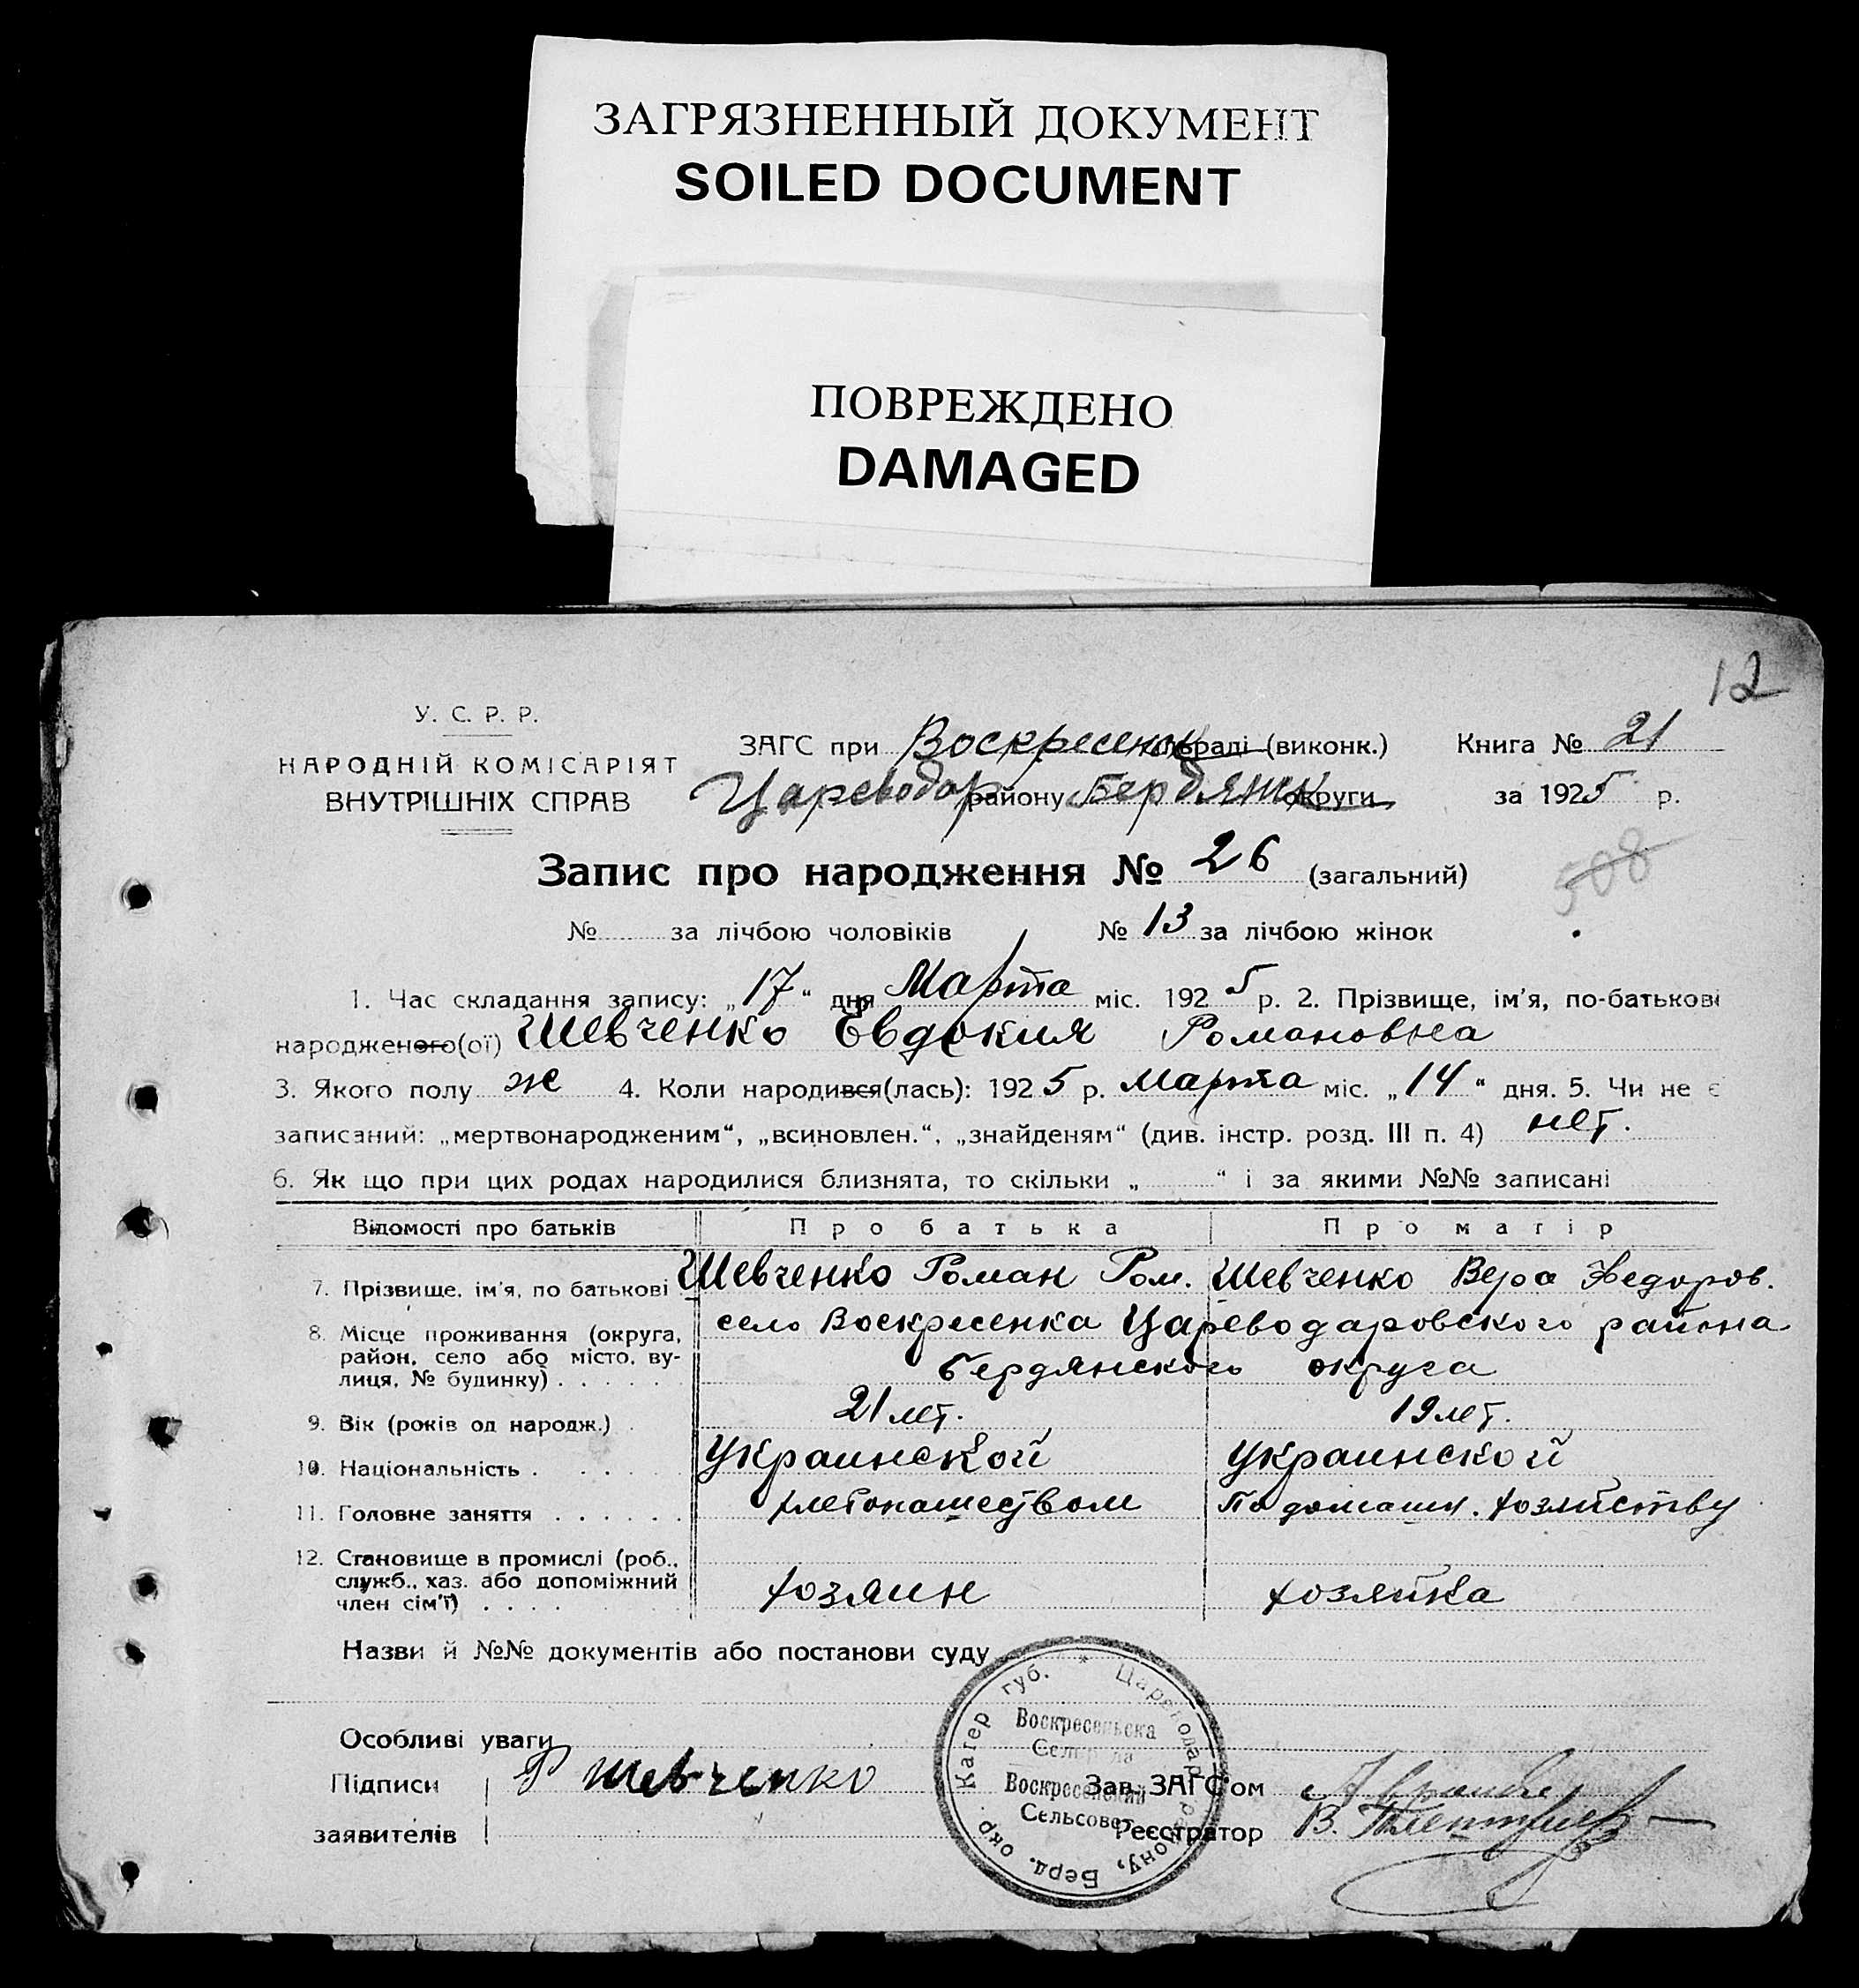 ЗАГРЯЗНЕННЫЙ ДОКУМЕНТ
SOILED DOCUMENT
ПОВРЕЖДЕНО
DAMAGED
12
У. С. Р. Р.
НАРОДНІЙ КОМІСАРІЯТ
ВНУТРІШНІХ СПРАВ
ЗАГС при Воскресенск раді (виконк.) Книга № 21
Цареводар району Бердянск округи за 1925 р.
Запис про народження № 26 (загальний)
508
№ за лічбою чоловіків № 13 за лічбою жінок
1. Час складання запису: „17“ дня Марта міс. 1925 р. 2. Прізвище, ім'я, по-батькові
народженого(ої) Шевченко Евдокия Романовна
3. Якого полу ж 4. Коли народився(лась): 1925 р. Марта міс. „14“ дня. 5. Чи не є
записаний: „мертвонародженим“, „всиновлен.“, „знайденям“ (див. інстр. розд. III п. 4) нет.
6. Як що при цих родах народилися близнята, то скільки „ “ і за якими №№ записані
Відомості про батьків Про батька Про матір
7. Прізвище, ім'я, по батькові Шевченко Роман Ром. Шевченко Вера Федоров.
8. Місце проживання (округа, село Воскресенка Цареводаровского района
район, село або місто, ву-
лиця, № будинку) . . . . . . Бердянского округа
9. Вік (років од народж.) . 21 лет. 19 лет.
10. Національність . . . . . Украинской Украинской
11. Головне заняття . . . . . . хлебопашеством По домашн. хозяйству
12. Становище в промислі (роб.,
служб., хаз. або допоміжний
член сім'ї) . . . . хозяин хозяйка
Назви й №№ документів або постанови суду
Особливі уваги
Підписи Р Шевченко Зав. ЗАГС'ом
заявителів Реєстратор В.
Катер губ. * Цареводар. району, Берд. окр.
Воскресенська
Сельрада
Воскресенский
Сельсовет